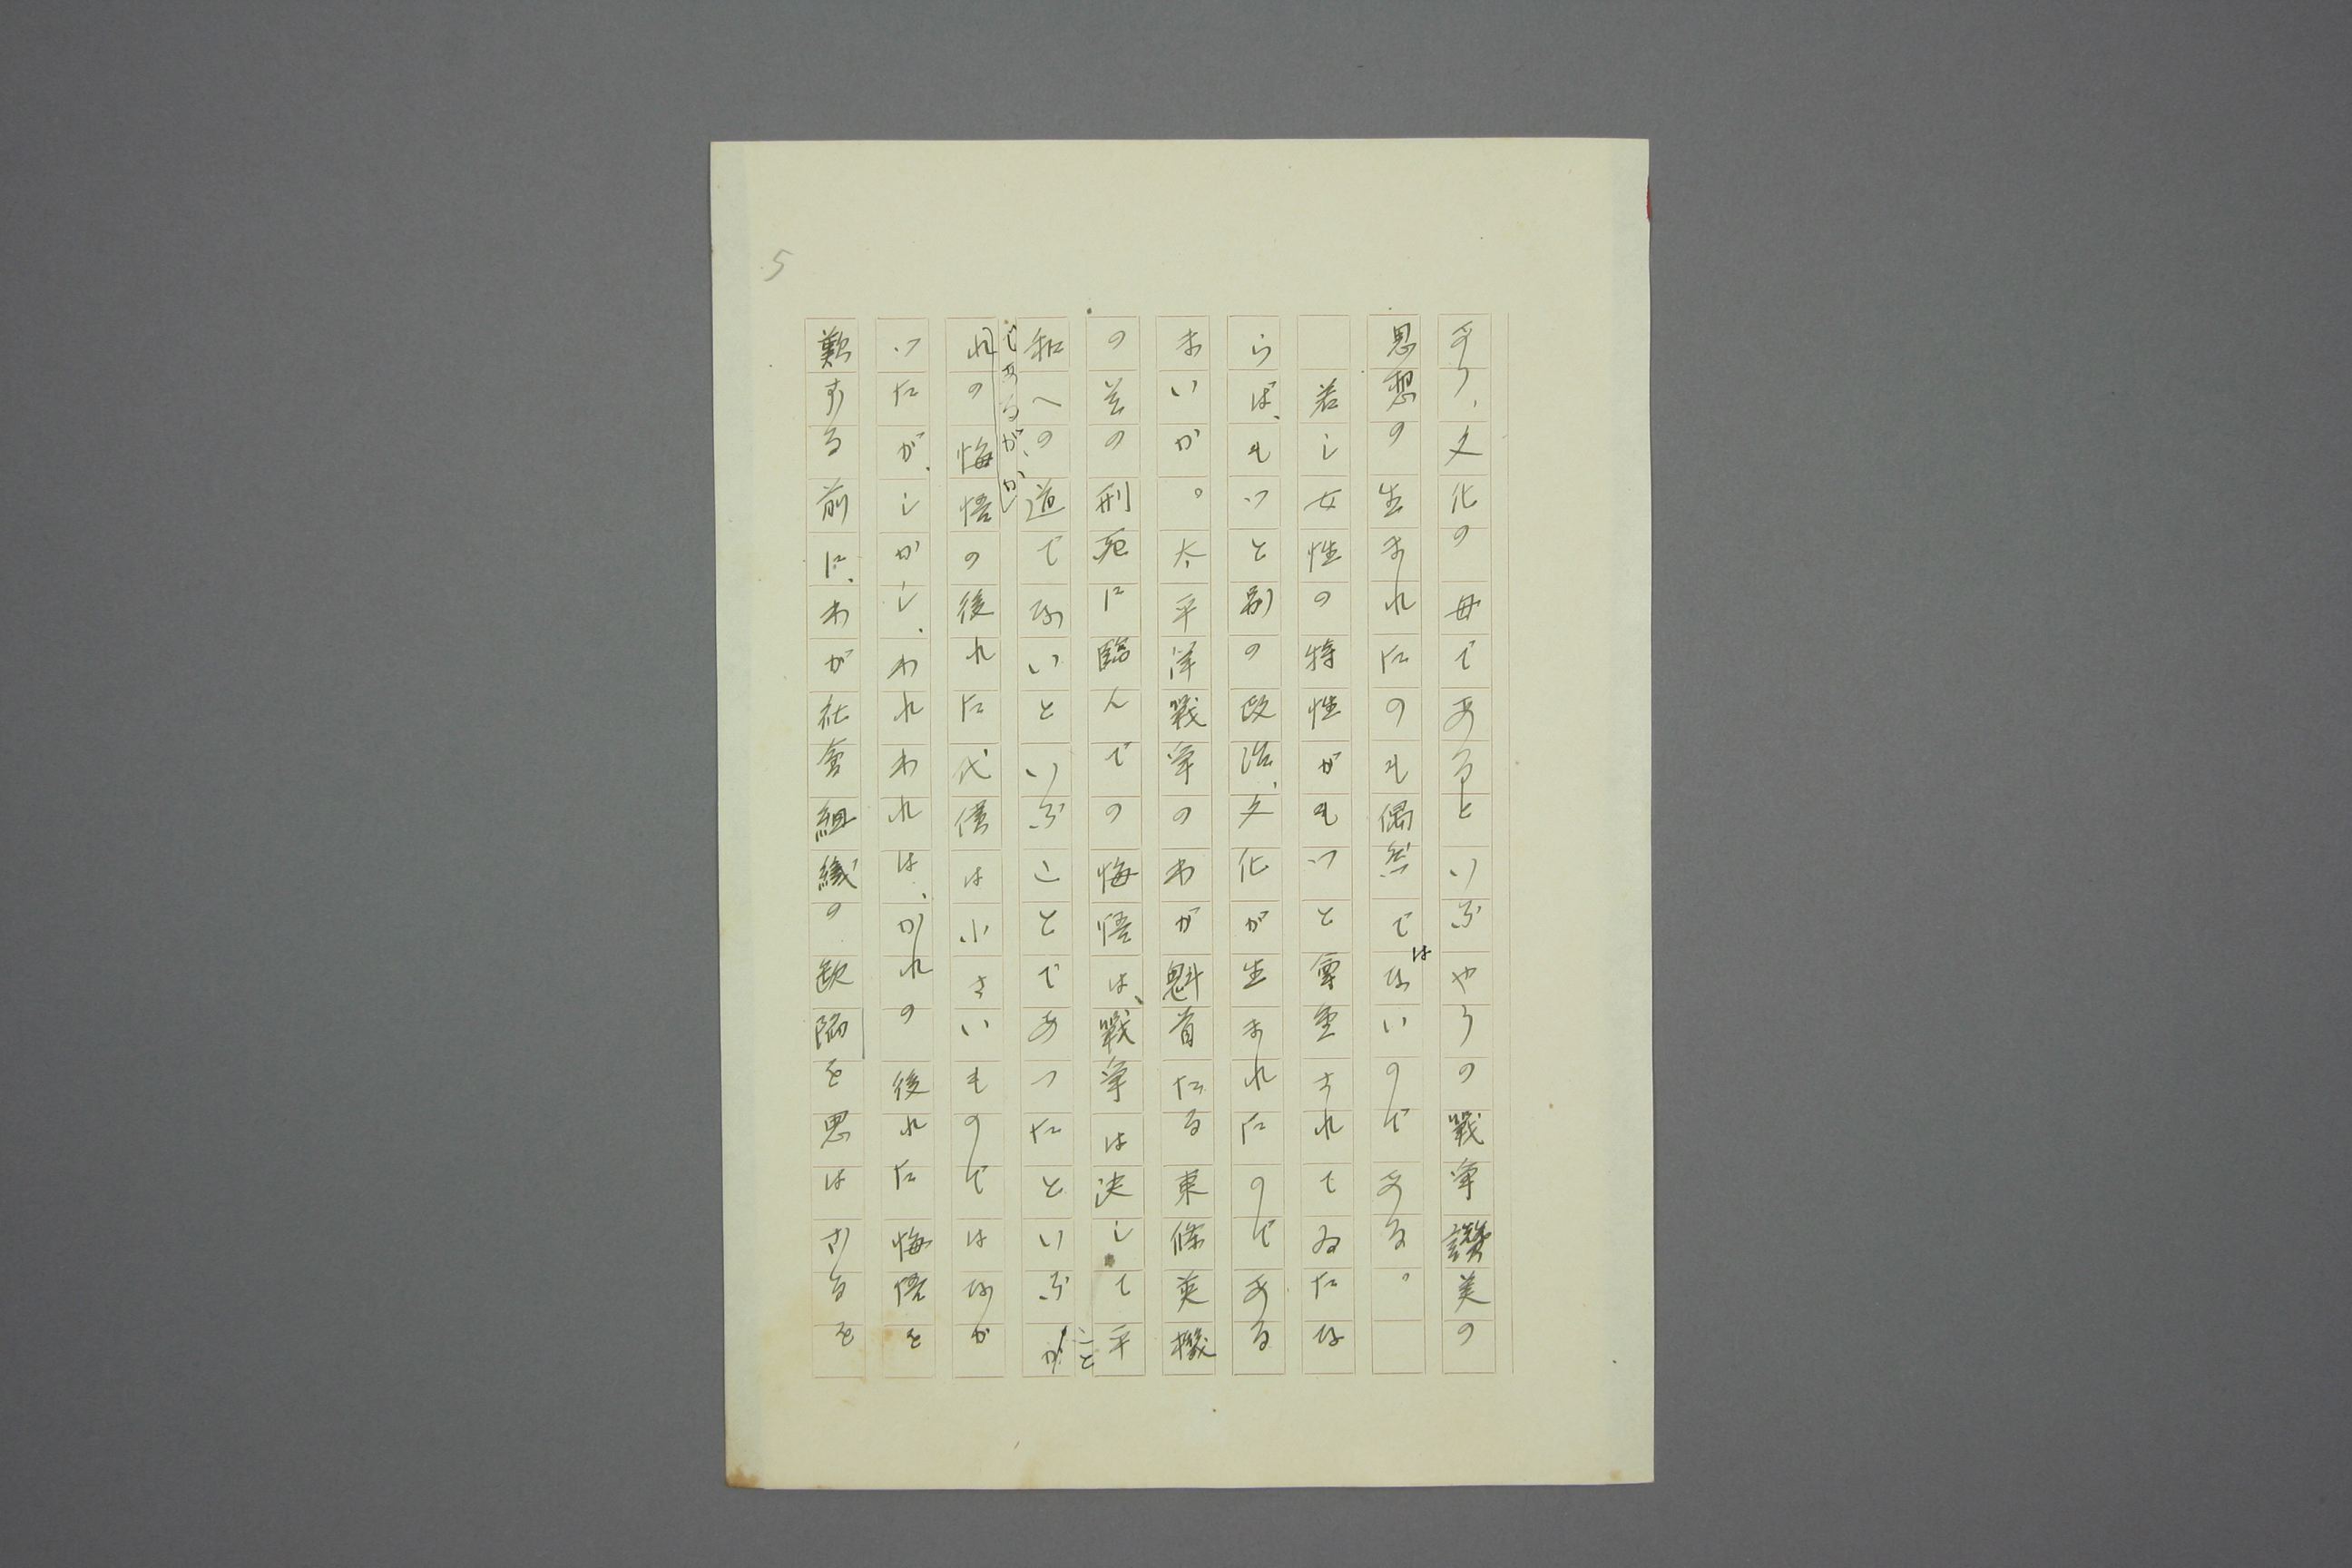 5
あり、文化の母であるといふやうの戰爭讃美の
思想の生まれたのも偶然ではないのである。
若し女性の特性がもつと尊重されてゐたな
らば、もつと別の政治、文化が生まれたのである
まいか。太平洋戰爭のわが魁首たる東條英機
の其の刑死に臨んでの悔悟は、戰爭は決して平
和への道でないといふことであつたといふこと
であるが、か
れの悔悟の後れた代償は小さいものではなか
つたが、しかし、われわれは、かれの後れた悔悟を
難ずる前に、わが社會組織の缺陥を思はざるを